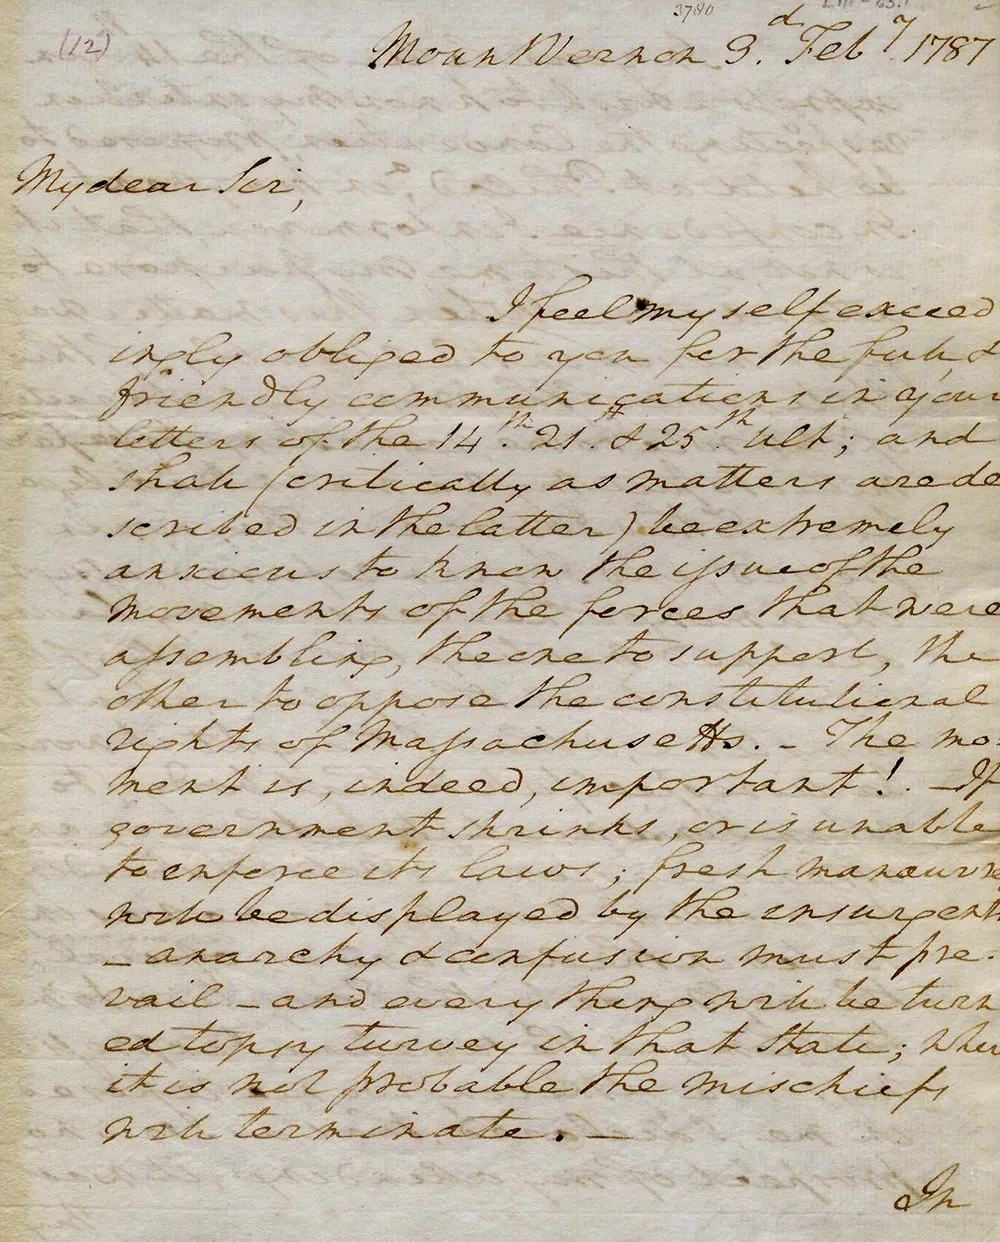 3780
(12)
Mount Vernon 3.d Feb.y 1787
My dear Sir,
I feel myself exceed
ingly obliged to you for the full, &
friendly communications in your
letters of the 14.th 21.st & 25.th ult; and
shall (critically as matters are de
scribed in the latter) be extremely
anxious to know the issue of the
movements of the forces that were
assembling, the one to support, the
other to oppose the constitutional
rights of Massachusetts. – The mo-
ment is, indeed, important! – If
government shrinks, or is unable
to enforce its laws; fresh manœuvres
will be displayed by the insurgents
– anarchy & confusion must pre-
vail – and every thing will be turn
ed topsy turvey in that State; where
it is not probable the mischiefs
will terminate. –
In